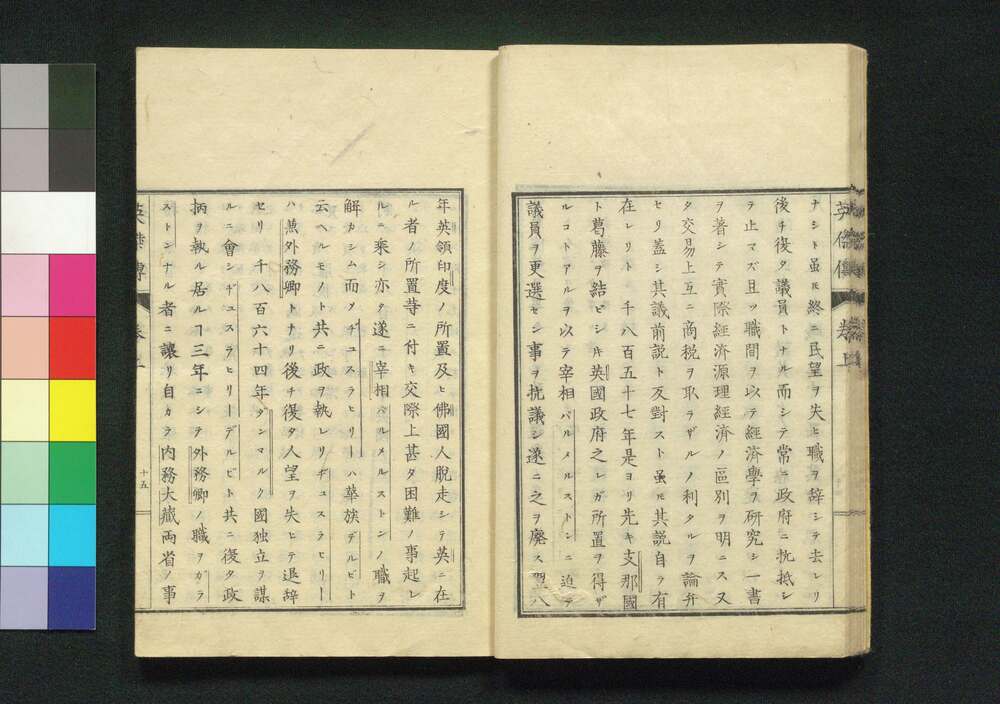 英傑傳 卷上
ナシト虽𪜈終ニ民望ヲ失ヒ職ヲ辞シテ去レリ
後チ復タ議員トナル而シテ常ニ政府ニ抗抵シ
テ止マズ且ツ職間ヲ以テ経済學ヲ研究シ一書
ヲ著シテ實際経済源理経済ノ區別ヲ明ニス又
タ交易上互ニ商税ヲ取ラザルノ利タルヲ論弁
セリ蓋シ其議前説ト反對スト虽𪜈其説自ラ有
在レリト 千八百五十七年是ヨリ先キ支那國
ト葛藤ヲ結ビシ𪜈英國政府之レガ所置ヲ得ザ
ルコトアルヲ以テ宰相パルメルストンニ迫テ
議員ヲ更選セン事ヲ抗議シ遂ニ之ヲ廃ス翌八
年英領印度ノ所置及ヒ佛國人脱走シテ英ニ在
ル者ノ所置等ニ付キ交際上甚タ困難ノ事起レ
ルニ乗シ亦タ遂ニ宰相パルメルストンノ職ヲ
解カシム而ヲヂュスラヒリーハ華族デルビト
云ヘルモノト共ニ政ヲ執レリヂュスラヒリー
ハ蒽外務卿トナリ後チ復タ人望ヲ失ヒテ退辞
セリ 千八百六十四年ダンマルク國独立ヲ謀
ルニ會シヂュスラヒリーデルビト共ニ復タ政
柄ヲ執ル居ルヿ三年ニシテ外務卿ノ職ヲガラ
ストンナル者ニ讓リ自カラ内務大藏両省ノ事
英傑傳 卷上
十五